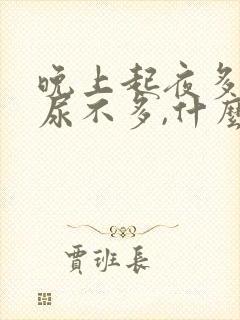 晚上起夜多
尿不多,什麼
賈班長